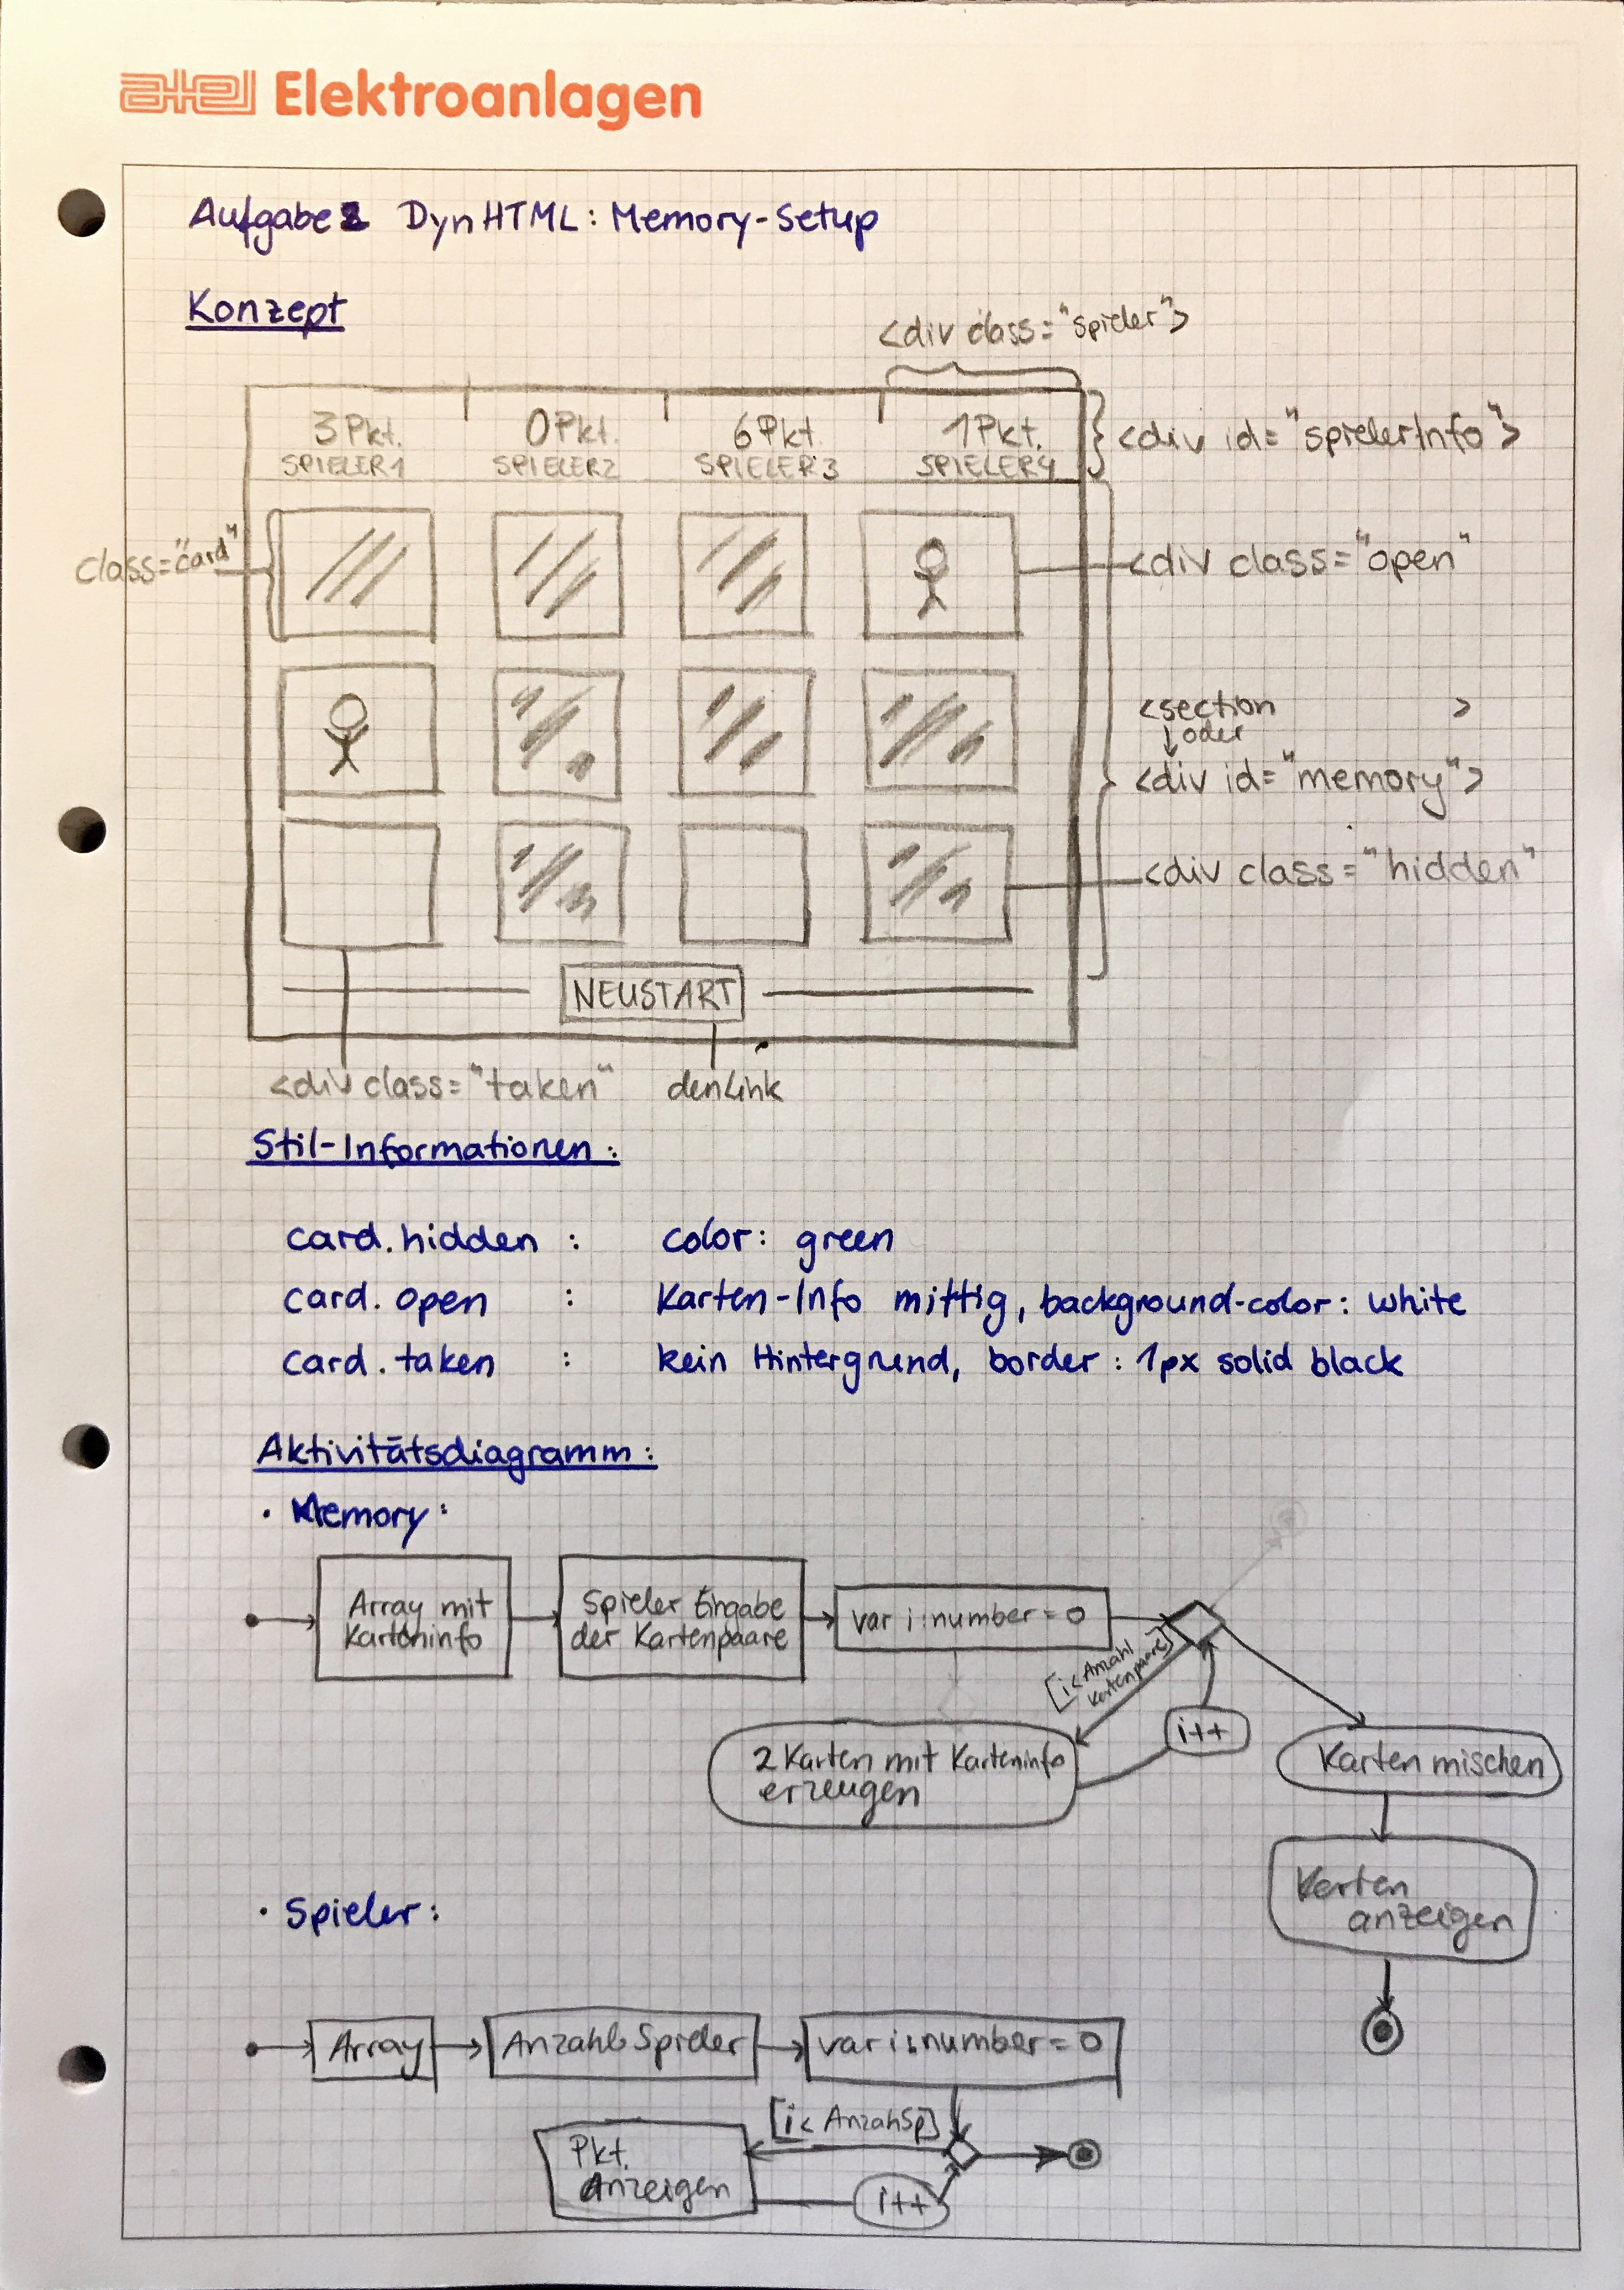 atel Elektroanlagen
Aufgabe 2 DynHTML: Memory-Setup
Konzept
<div class="spieler">
3 Pkt. 0 Pkt. 6 Pkt. 1 Pkt.
SPIELER1 SPIELER2 SPIELER3 SPIELER4
<div id="spielerInfo">
class="card"
<div class="open"
<section >
oder
<div id="memory">
<div class="hidden"
NEUSTART
<div class="taken"
denLink
Stil-Informationen:
card.hidden : color: green
card.open : Karten-Info mittig, background-color: white
card.taken : kein Hintergrund, border: 1px solid black
Aktivitätsdiagramm:
• Memory:
Array mit
Karteninfo
Spieler Eingabe
der Kartenpaare
var i:number = 0
[i < Anzahl
Kartenpaare]
i++
2 Karten mit Karteninfo
erzeugen
Karten mischen
Karten
anzeigen
• Spieler:
Array
Anzahl Spieler
var i:number = 0
[i < AnzahlSp]
Pkt.
Anzeigen
i++